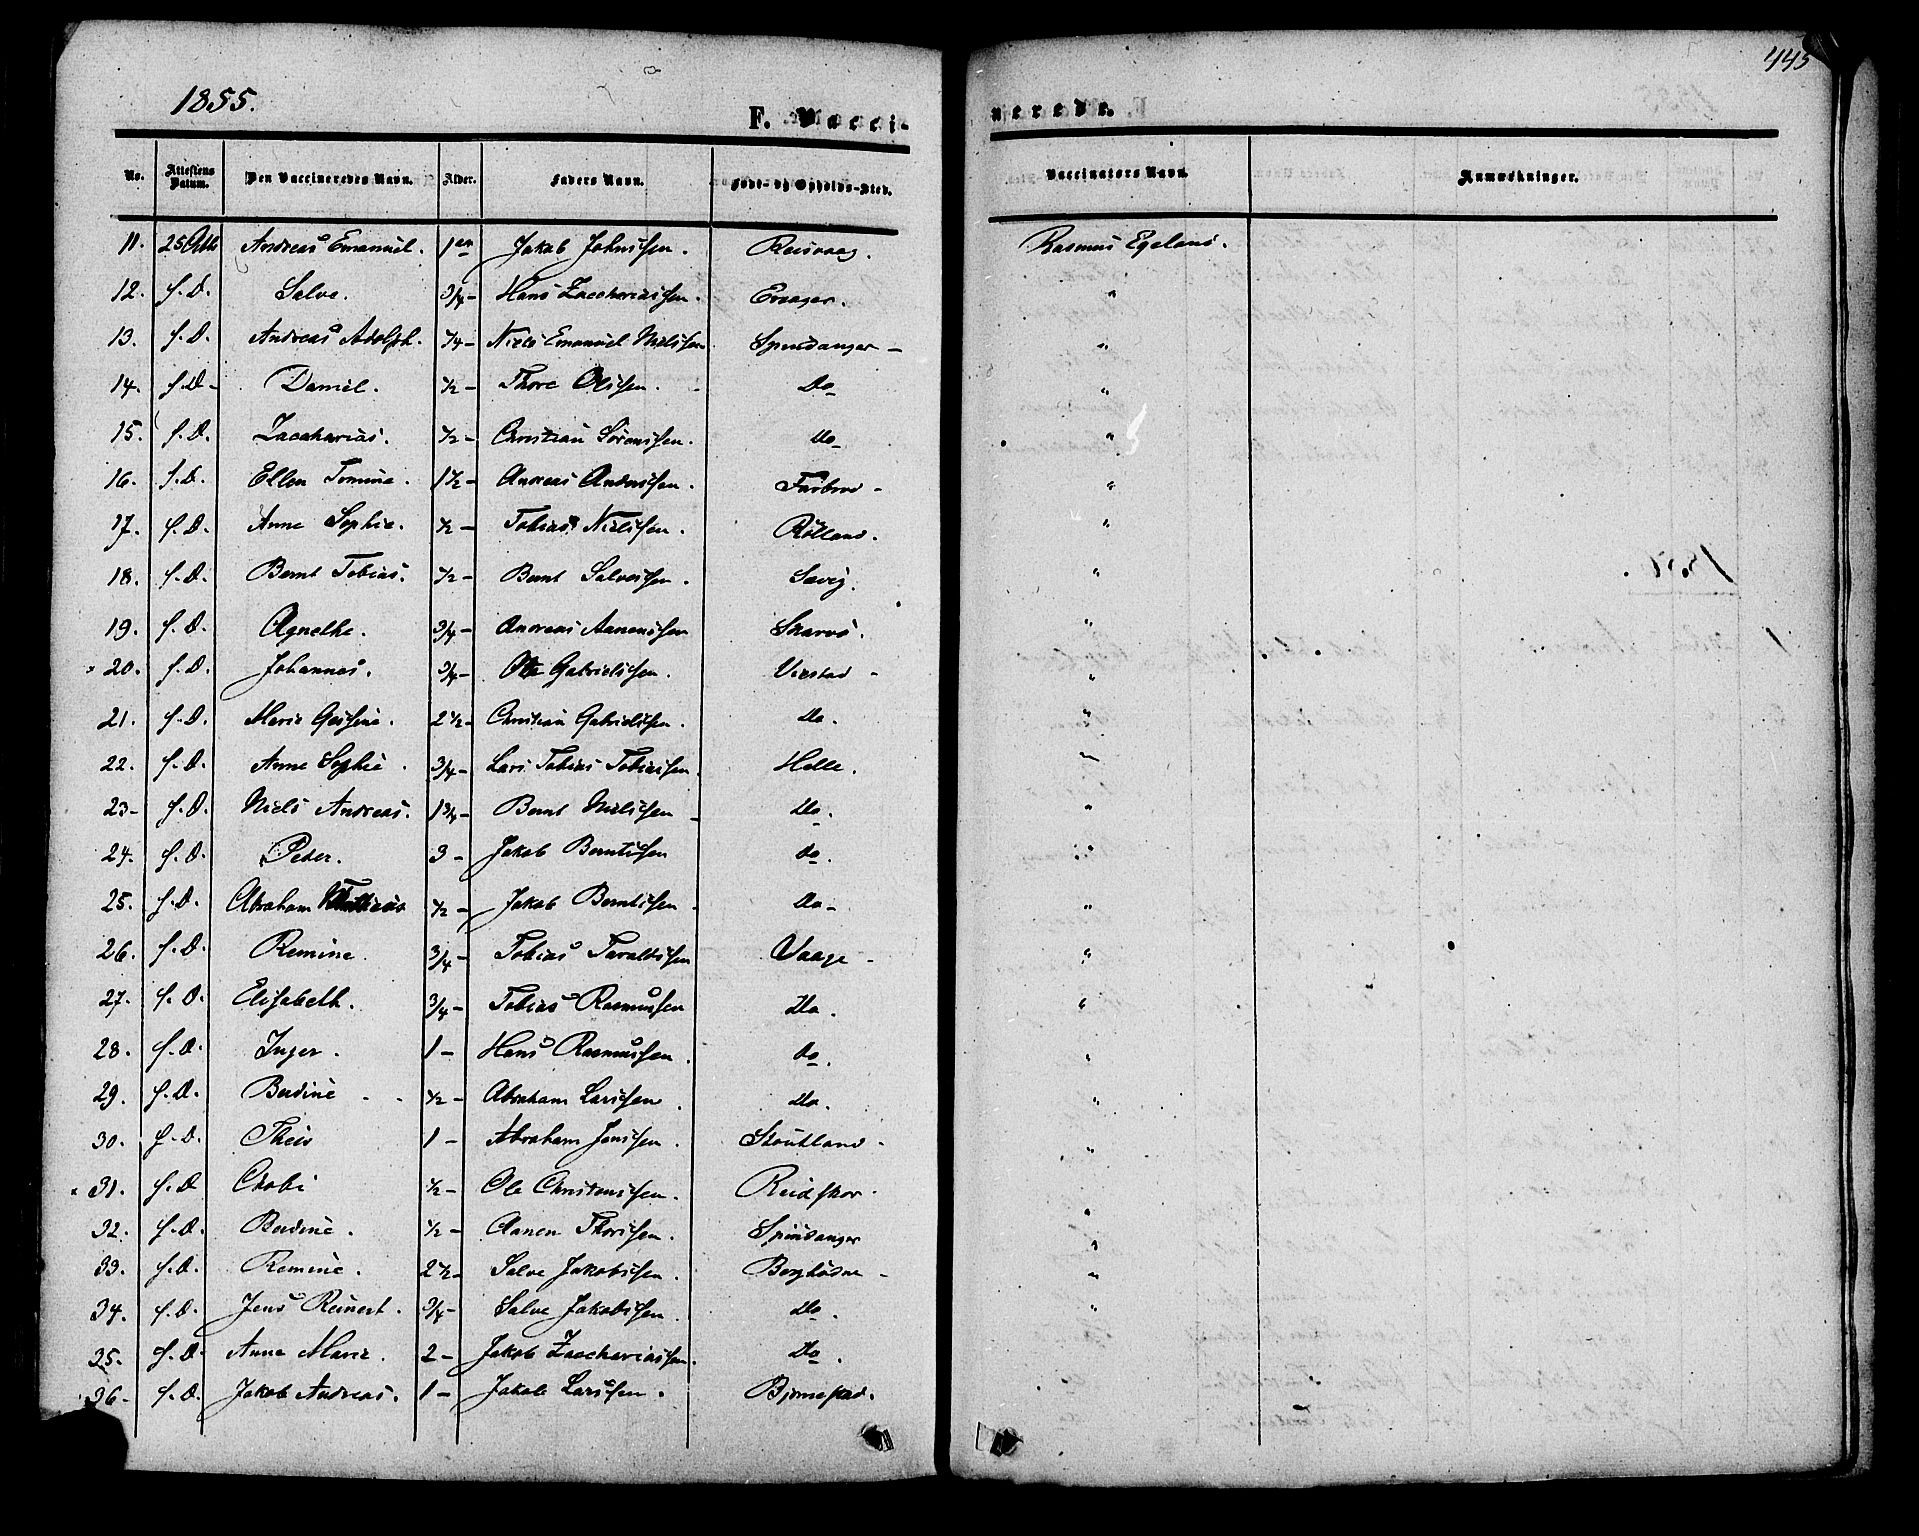 1855.
445
F. Vaccinerede.
No. Attestens Datum. Den Vaccineredes Navn. Alder. Faders Navn. Føde- og Opholds-Sted. Vaccinators Navn. Anmærkninger.
11. 25 Andreas Emanuel. 1 Jakob Johnssen. Reisvaag. Rasmus Egeland.
12. s. D. Salve. 3/4 - Hans Zachariassen. "
13. s. D. Andreas Adolph. Niels Emanuel Nielssen Spindanger - "
14. s. D - Daniel. 1/2 - Thore Olissen. Do "
15. s. D. Zacharias. 1/2 - Christian Sørenssen. Do "
16. s. D. Ellen Tomine. 1 1/2 - Andreas Anderssen. "
17. s. D. Anne Sophie. 1/2 - Tobias Nielssen. Rølland. "
18. s. D. Bernt Tobias. 1/2 - Bernt Salvessen. Sævig. "
19. s. D. Agnethe. 3/4 - Andreas Aanenssen Skarvø. "
20. s. D. Johannes. 3/4 - Ole Gabrielssen. Virstad - "
21. s. D. Marie 2 1/2 - Christian Gabrielssen. Do. "
22. s. D. Anne Sophie. 3/4 - Lars Tobias Tobiassen. Helle. "
23 - s. D. Niels Andreas. 1 3/4 - Bernt Nielssen - Do. "
24. s. D. Peder. 3 - Jakob Berntssen do. "
25. s. D. Abraham Mathias 1/2 - Jakob Berntssen - Do - "
26. s. D. Remine. 3/4 - Tobias Taraldssen Vaage - "
27. s. D. Elisabeth. 3/4 - Tobias Rasmussen Do. "
28. s. D. Inger. 1 - Hans Rasmussen. do. "
29. s. D. Berdine 1/2 - Abraham Larssen. do. "
30. s. D. Theis 1 - Abraham Jenssen. Stoutland - "
31. s. D 1/2 - Ole Christenssen. Reidskor. "
32. s. D. Berdine. 1/2 - Aanen Thorissen. Spindanger "
33. s. D. Remine. 2 1/2 - Salve Jakobssen. - "
34. s. D. Jens Reinert. 3/4 - Salve Jakobssen. Do. "
35. s. D. Anne Marie. 2 - Jakob Zachariassen. Do.
36 - s. D. Jakob Andreas. 1 - Jakob Larssen. Bjørnestad.